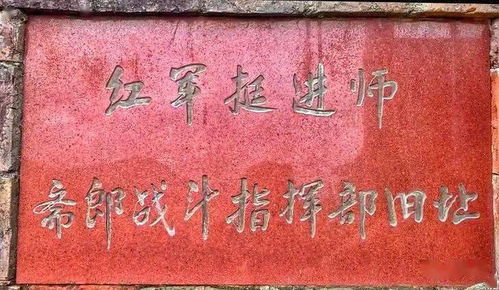 红军挺进师
斋郎战斗指挥部旧址